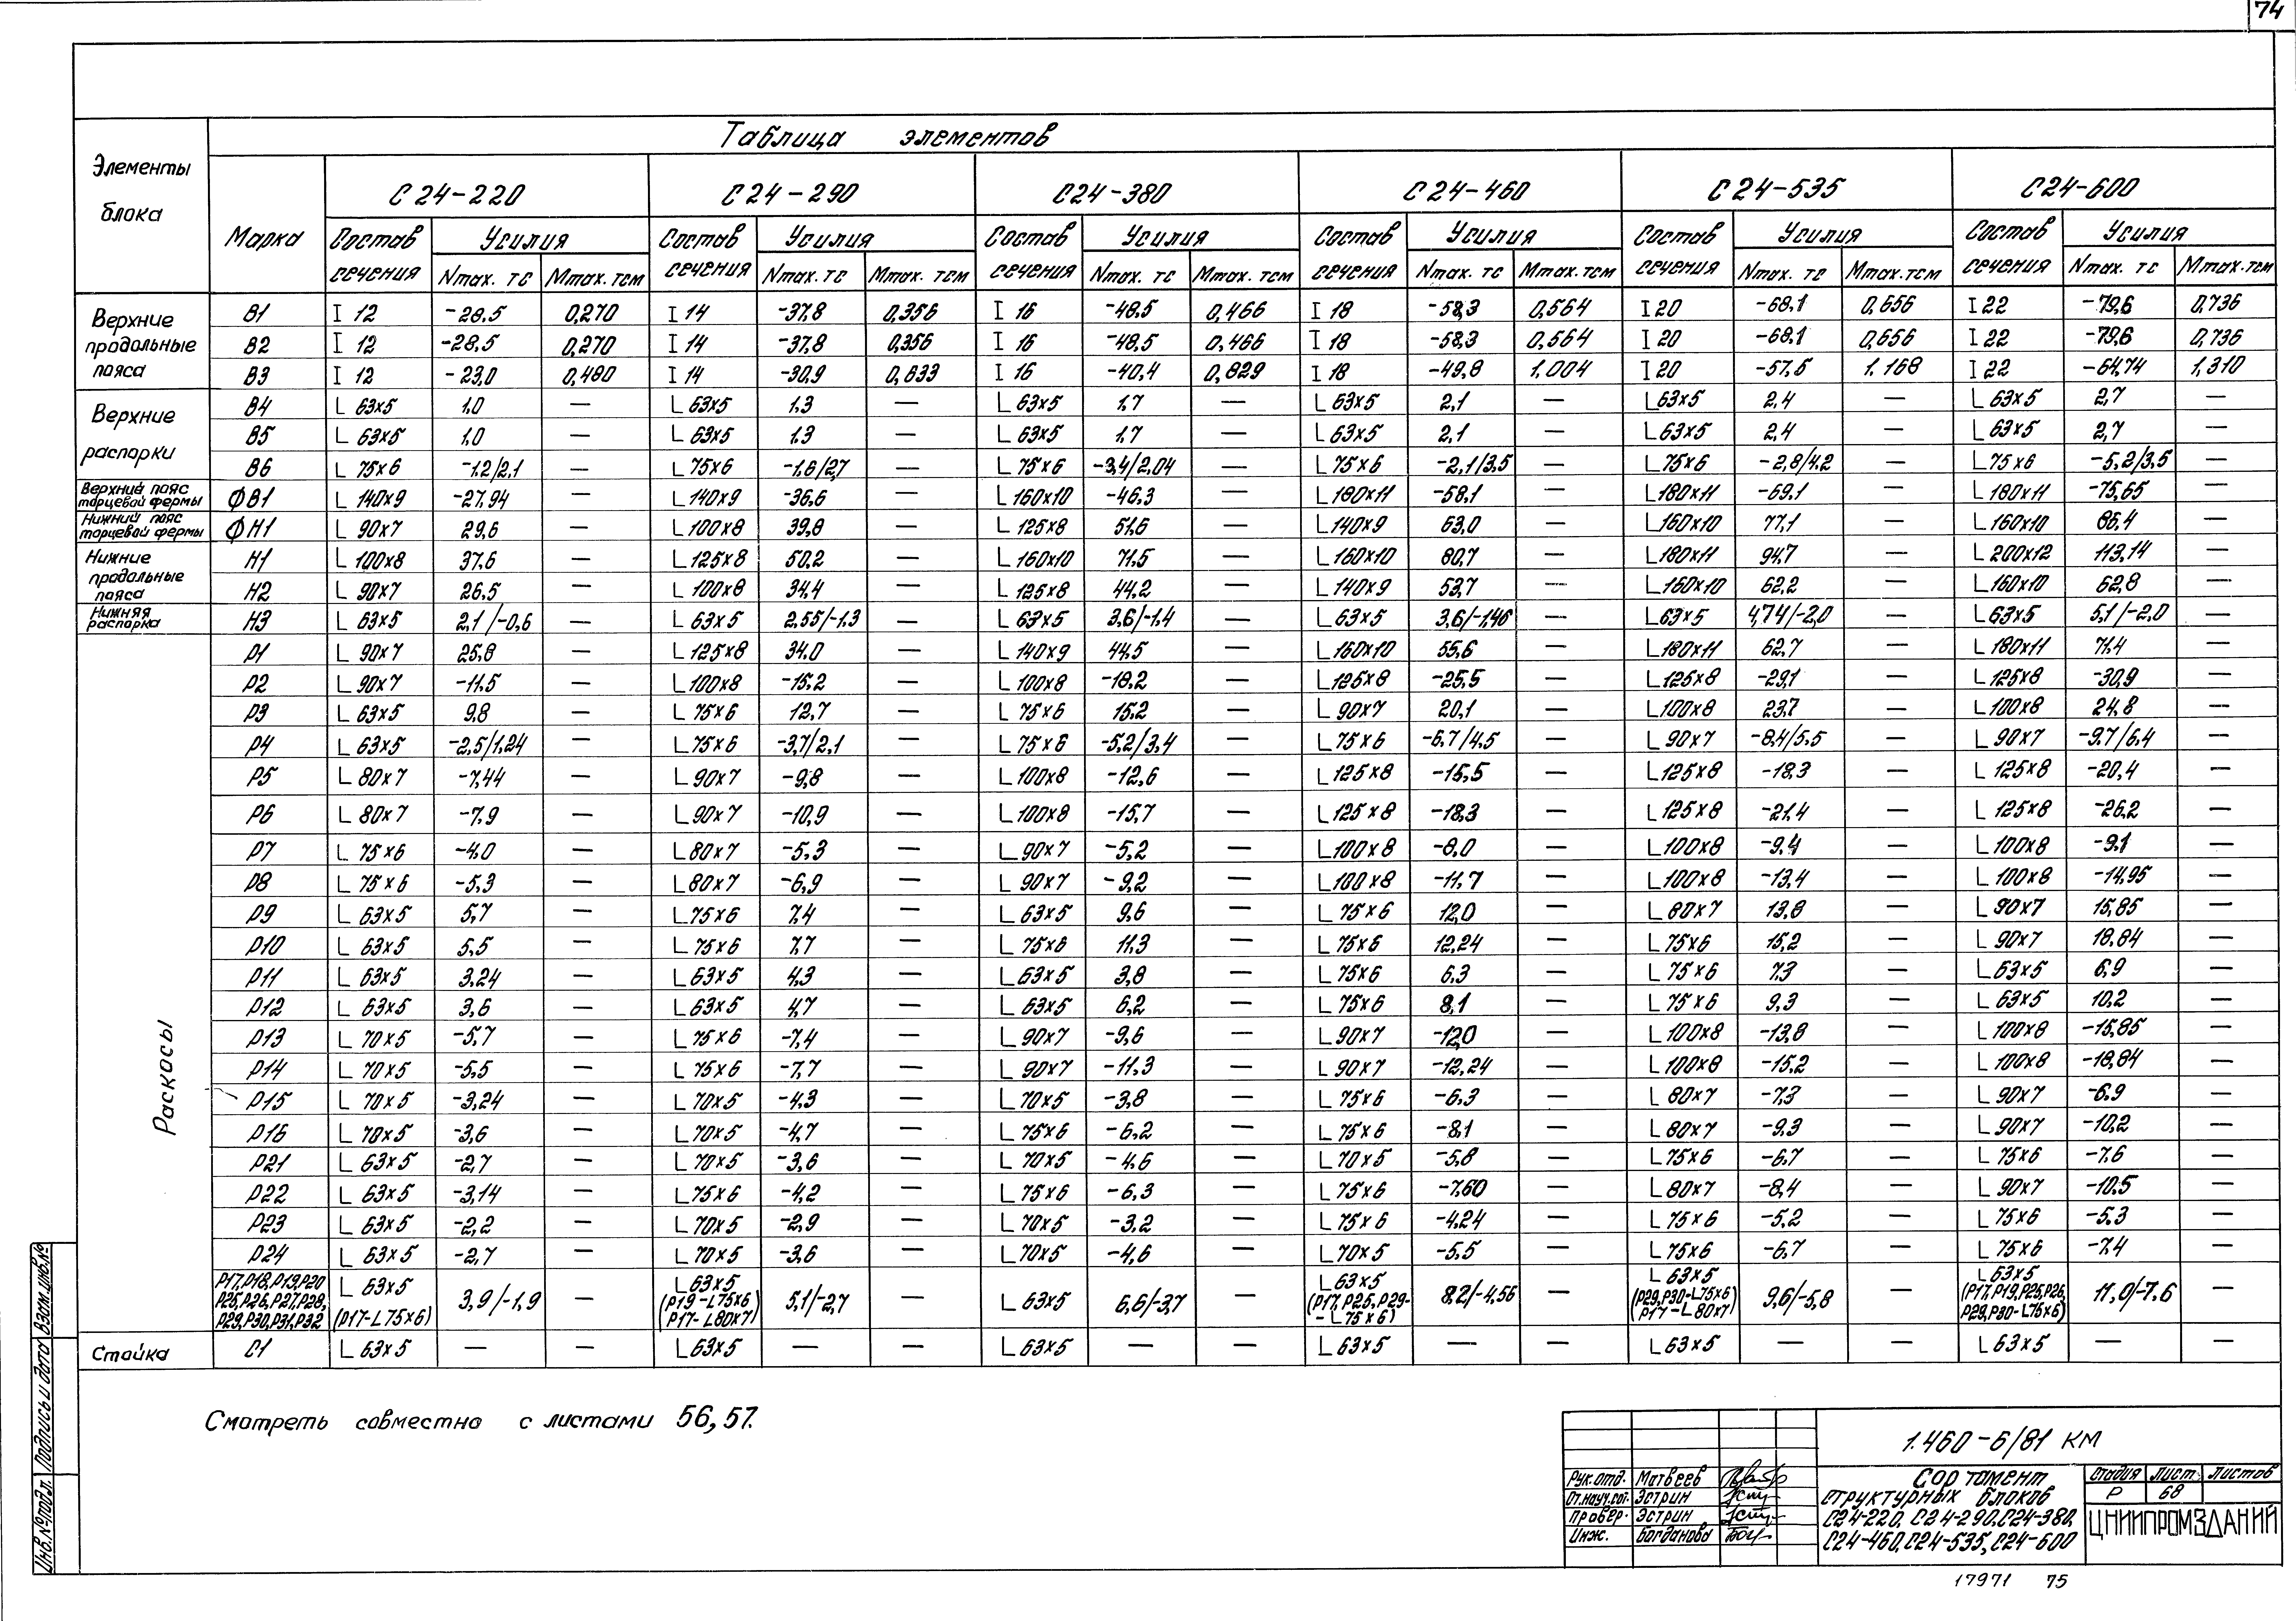 74
Таблица элементов
Элементы блока | Марка | С24-220 | С24-290 | С24-380 | С24-460 | С24-535 | С24-600
Состав сечения | Усилия | Состав сечения | Усилия | Состав сечения | Усилия | Состав сечения | Усилия | Состав сечения | Усилия | Состав сечения | Усилия
Nmax. тс | Mmax. тсм | Nmax. тс | Mmax. тсм | Nmax. тс | Mmax. тсм | Nmax. тс | Mmax. тсм | Nmax. тс | Mmax. тсм | Nmax. тс | Mmax. тсм
Верхние продольные пояса
В1 | I 12 | -28.5 | 0,270 | I 14 | -37,8 | 0,356 | I 16 | -48,5 | 0,466 | I 18 | -58,3 | 0,564 | I 20 | -68,1 | 0,656 | I 22 | -79,6 | 0,736
В2 | I 12 | -28,5 | 0,270 | I 14 | -37,8 | 0,356 | I 16 | -48,5 | 0,466 | I 18 | -58,3 | 0,564 | I 20 | -68,1 | 0,656 | I 22 | -79,6 | 0,736
В3 | I 12 | -23,0 | 0,480 | I 14 | -30,9 | 0,633 | I 16 | -40,4 | 0,829 | I 18 | -49,8 | 1.004 | I 20 | -57,5 | 1.168 | I 22 | -64,74 | 1,310
Верхние распорки
В4 | L 63х5 | 1,0 | — | L 63х5 | 1.3 | — | L 63х5 | 1,7 | — | L 63х5 | 2,1 | — | L 63х5 | 2,4 | — | L 63х5 | 2,7 | —
В5 | L 63х5 | 1,0 | — | L 63х5 | 1.3 | — | L 63х5 | 1,7 | — | L 63х5 | 2,1 | — | L 63х5 | 2,4 | — | L 63х5 | 2,7 | —
В6 | L 75х6 | -1.2/2,1 | — | L 75х6 | -1,6/2,7 | — | L 75х6 | -3,4/2,04 | — | L 75х6 | -2,1/3,5 | — | L 75х6 | -2,8/4.2 | — | L 75х6 | -5,2/3,5 | —
Верхние пояс торцевой фермы
ФВ1 | L 140х9 | -27,94 | — | L 140х9 | -36,6 | — | L 160х10 | -46,3 | — | L 180х11 | -58,1 | — | L 180х11 | -69,1 | — | L 180х11 | -75,65 | —
Нижний пояс торцевой фермы
ФН1 | L 90х7 | 29,6 | — | L 100х8 | 39,8 | — | L 125х8 | 51,6 | — | L 140х9 | 63,0 | — | L 160х10 | 77,1 | — | L 160х10 | 86,4 | —
Нижние продольные пояса
Н1 | L 100х8 | 37,6 | — | L 125х8 | 50,2 | — | L 160х10 | 71,5 | — | L 160х10 | 80,7 | — | L 180х11 | 94,7 | — | L 200х12 | 113,14 | —
Н2 | L 90х7 | 26,5 | — | L 100х8 | 34,4 | — | L 125х8 | 44,2 | — | L 140х9 | 53,7 | — | L 160х10 | 62,2 | — | L 160х10 | 62,8 | —
Нижняя распорка
Н3 | L 63х5 | 2,1/-0,6 | — | L 63х5 | 2,55/-1,3 | — | L 63х5 | 3,6/-1,4 | — | L 63х5 | 3,6/-1,46 | — | L 63х5 | 4,74/-2,0 | — | L 63х5 | 5,1/-2,0 | —
Раскосы
Р1 | L 90х7 | 25,8 | — | L 125х8 | 34.0 | — | L 140х9 | 44,5 | — | L 160х10 | 55,6 | — | L 180х11 | 62,7 | — | L 180х11 | 71,4 | —
Р2 | L 90х7 | -11,5 | — | L 100х8 | -15,2 | — | L 100х8 | -18,2 | — | L 125х8 | -25,5 | — | L 125х8 | -29,1 | — | L 125х8 | -30,9 | —
Р3 | L 63х5 | 9,8 | — | L 75х6 | 12,7 | — | L 75х6 | 15.2 | — | L 90х7 | 20,1 | — | L 100х8 | 23,7 | — | L 100х8 | 24,8 | —
Р4 | L 63х5 | -2,5/1,24 | — | L 75х6 | -3,7/2,1 | — | L 75х6 | -5,2/3,4 | — | L 75х6 | -6,7/4,5 | — | L 90х7 | -8,4/5,5 | — | L 90х7 | -9,7/6,4 | —
Р5 | L 80х7 | -7,44 | — | L 90х7 | -9,8 | — | L 100х8 | -12,6 | — | L 125х8 | -15,5 | — | L 125х8 | -18,3 | — | L 125х8 | -20,4 | —
Р6 | L 80х7 | -7,9 | — | L 90х7 | -10,9 | — | L 100х8 | -15,7 | — | L 125х8 | -18,3 | — | L 125х8 | -21,4 | — | L 125х8 | -26,2 | —
Р7 | L 75х6 | -4,0 | — | L 80х7 | -5,3 | — | L 90х7 | -5,2 | — | L 100х8 | -8,0 | — | L 100х8 | -9,4 | — | L 100х8 | -9,1 | —
Р8 | L 75х6 | -5,3 | — | L 80х7 | -6,9 | — | L 90х7 | -9,2 | — | L 100х8 | -11,7 | — | L 100х8 | -13,4 | — | L 100х8 | -14,95 | —
Р9 | L 63х5 | 5,7 | — | L 75х6 | 7,4 | — | L 63х5 | 9,6 | — | L 75х6 | 12,0 | — | L 80х7 | 13,8 | — | L 90х7 | 15,85 | —
Р10 | L 63х5 | 5,5 | — | L 75х6 | 7,7 | — | L 75х6 | 11,3 | — | L 75х6 | 12,24 | — | L 75х6 | 15,2 | — | L 90х7 | 18,84 | —
Р11 | L 63х5 | 3,24 | — | L 63х5 | 4,3 | — | L 63х5 | 3,8 | — | L 75х6 | 6,3 | — | L 75х6 | 7,3 | — | L 63х5 | 6,9 | —
Р12 | L 63х5 | 3,6 | — | L 63х5 | 4,7 | — | L 63х5 | 6,2 | — | L 75х6 | 8,1 | — | L 75х6 | 9,3 | — | L 63х5 | 10,2 | —
Р13 | L 70х5 | -5,7 | — | L 75х6 | -7,4 | — | L 90х7 | -9,6 | — | L 90х7 | -12,0 | — | L 100х8 | -13,8 | — | L 100х8 | -15,85 | —
Р14 | L 70х5 | -5,5 | — | L 75х6 | -7,7 | — | L 90х7 | -11,3 | — | L 90х7 | -12,24 | — | L 100х8 | -15,2 | — | L 100х8 | -18,84 | —
Р15 | L 70х5 | -3,24 | — | L 70х5 | -4,3 | — | L 70х5 | -3,8 | — | L 75х6 | -6,3 | — | L 80х7 | -7,3 | — | L 90х7 | -6,9 | —
Р16 | L 70х5 | -3,6 | — | L 70х5 | -4,7 | — | L 75х6 | -6,2 | — | L 75х6 | -8,1 | — | L 80х7 | -9,3 | — | L 90х7 | -10,2 | —
Р21 | L 63х5 | -2,7 | — | L 70х5 | -3,6 | — | L 70х5 | -4,6 | — | L 70х5 | -5,8 | — | L 75х6 | -6,7 | — | L 75х6 | -7,6 | —
Р22 | L 63х5 | -3,14 | — | L 75х6 | -4,2 | — | L 75х6 | -6,3 | — | L 75х6 | -7,60 | — | L 80х7 | -8,4 | — | L 90х7 | -10.5 | —
Р23 | L 63х5 | -2,2 | — | L 70х5 | -2,9 | — | L 70х5 | -3,2 | — | L 75х6 | -4,24 | — | L 75х6 | -5,2 | — | L 75х6 | -5,3 | —
Р24 | L 63х5 | -2,7 | — | L 70х5 | -3,6 | — | L 70х5 | -4,6 | — | L 70х5 | -5,5 | — | L 75х6 | -6,7 | — | L 75х6 | -7,4 | —
Р17,Р18,Р19,Р20 Р25,Р26,Р27,Р28, Р29,Р30,Р31,Р32 | L 63х5 (Р17-L75х6) | 3,9/-1,9 | — | L 63х5 (Р19-L75х6) (Р17-L80х7) | 5,1/-2,7 | — | L 63х5 | 6,6/-3,7 | — | L 63х5 (Р17,Р25,Р29- -L75х6) | 8,2/-4,56 | — | L 63х5 (Р29,Р30-L75х6) (Р17-L80х7) | 9,6/-5,8 | — | L 63х5 (Р17,Р19,Р25,Р26, Р29,Р30-L75х6) | 11,0/-7.6 | —
Стойка | С1 | L 63х5 | — | — | L 63х5 | — | — | L 63х5 | — | — | L 63х5 | — | — | L 63х5 | — | — | L 63х5 | — | —
Смотреть совместно с листами 56, 57.
Инв.№подл. | Подпись и дата | Взам.инв.№
1.460-6/81 КМ
Рук.отд. Матвеев
Ст.науч.сот. Эстрин
Провер. Эстрин
Инж. Богданова
Сортамент
структурных блоков
С24-220, С24-290, С24-380,
С24-460, С24-535, С24-600
Стадия | Лист | Листов
Р | 68
ЦНИИПРОМЗДАНИЙ
17971 75